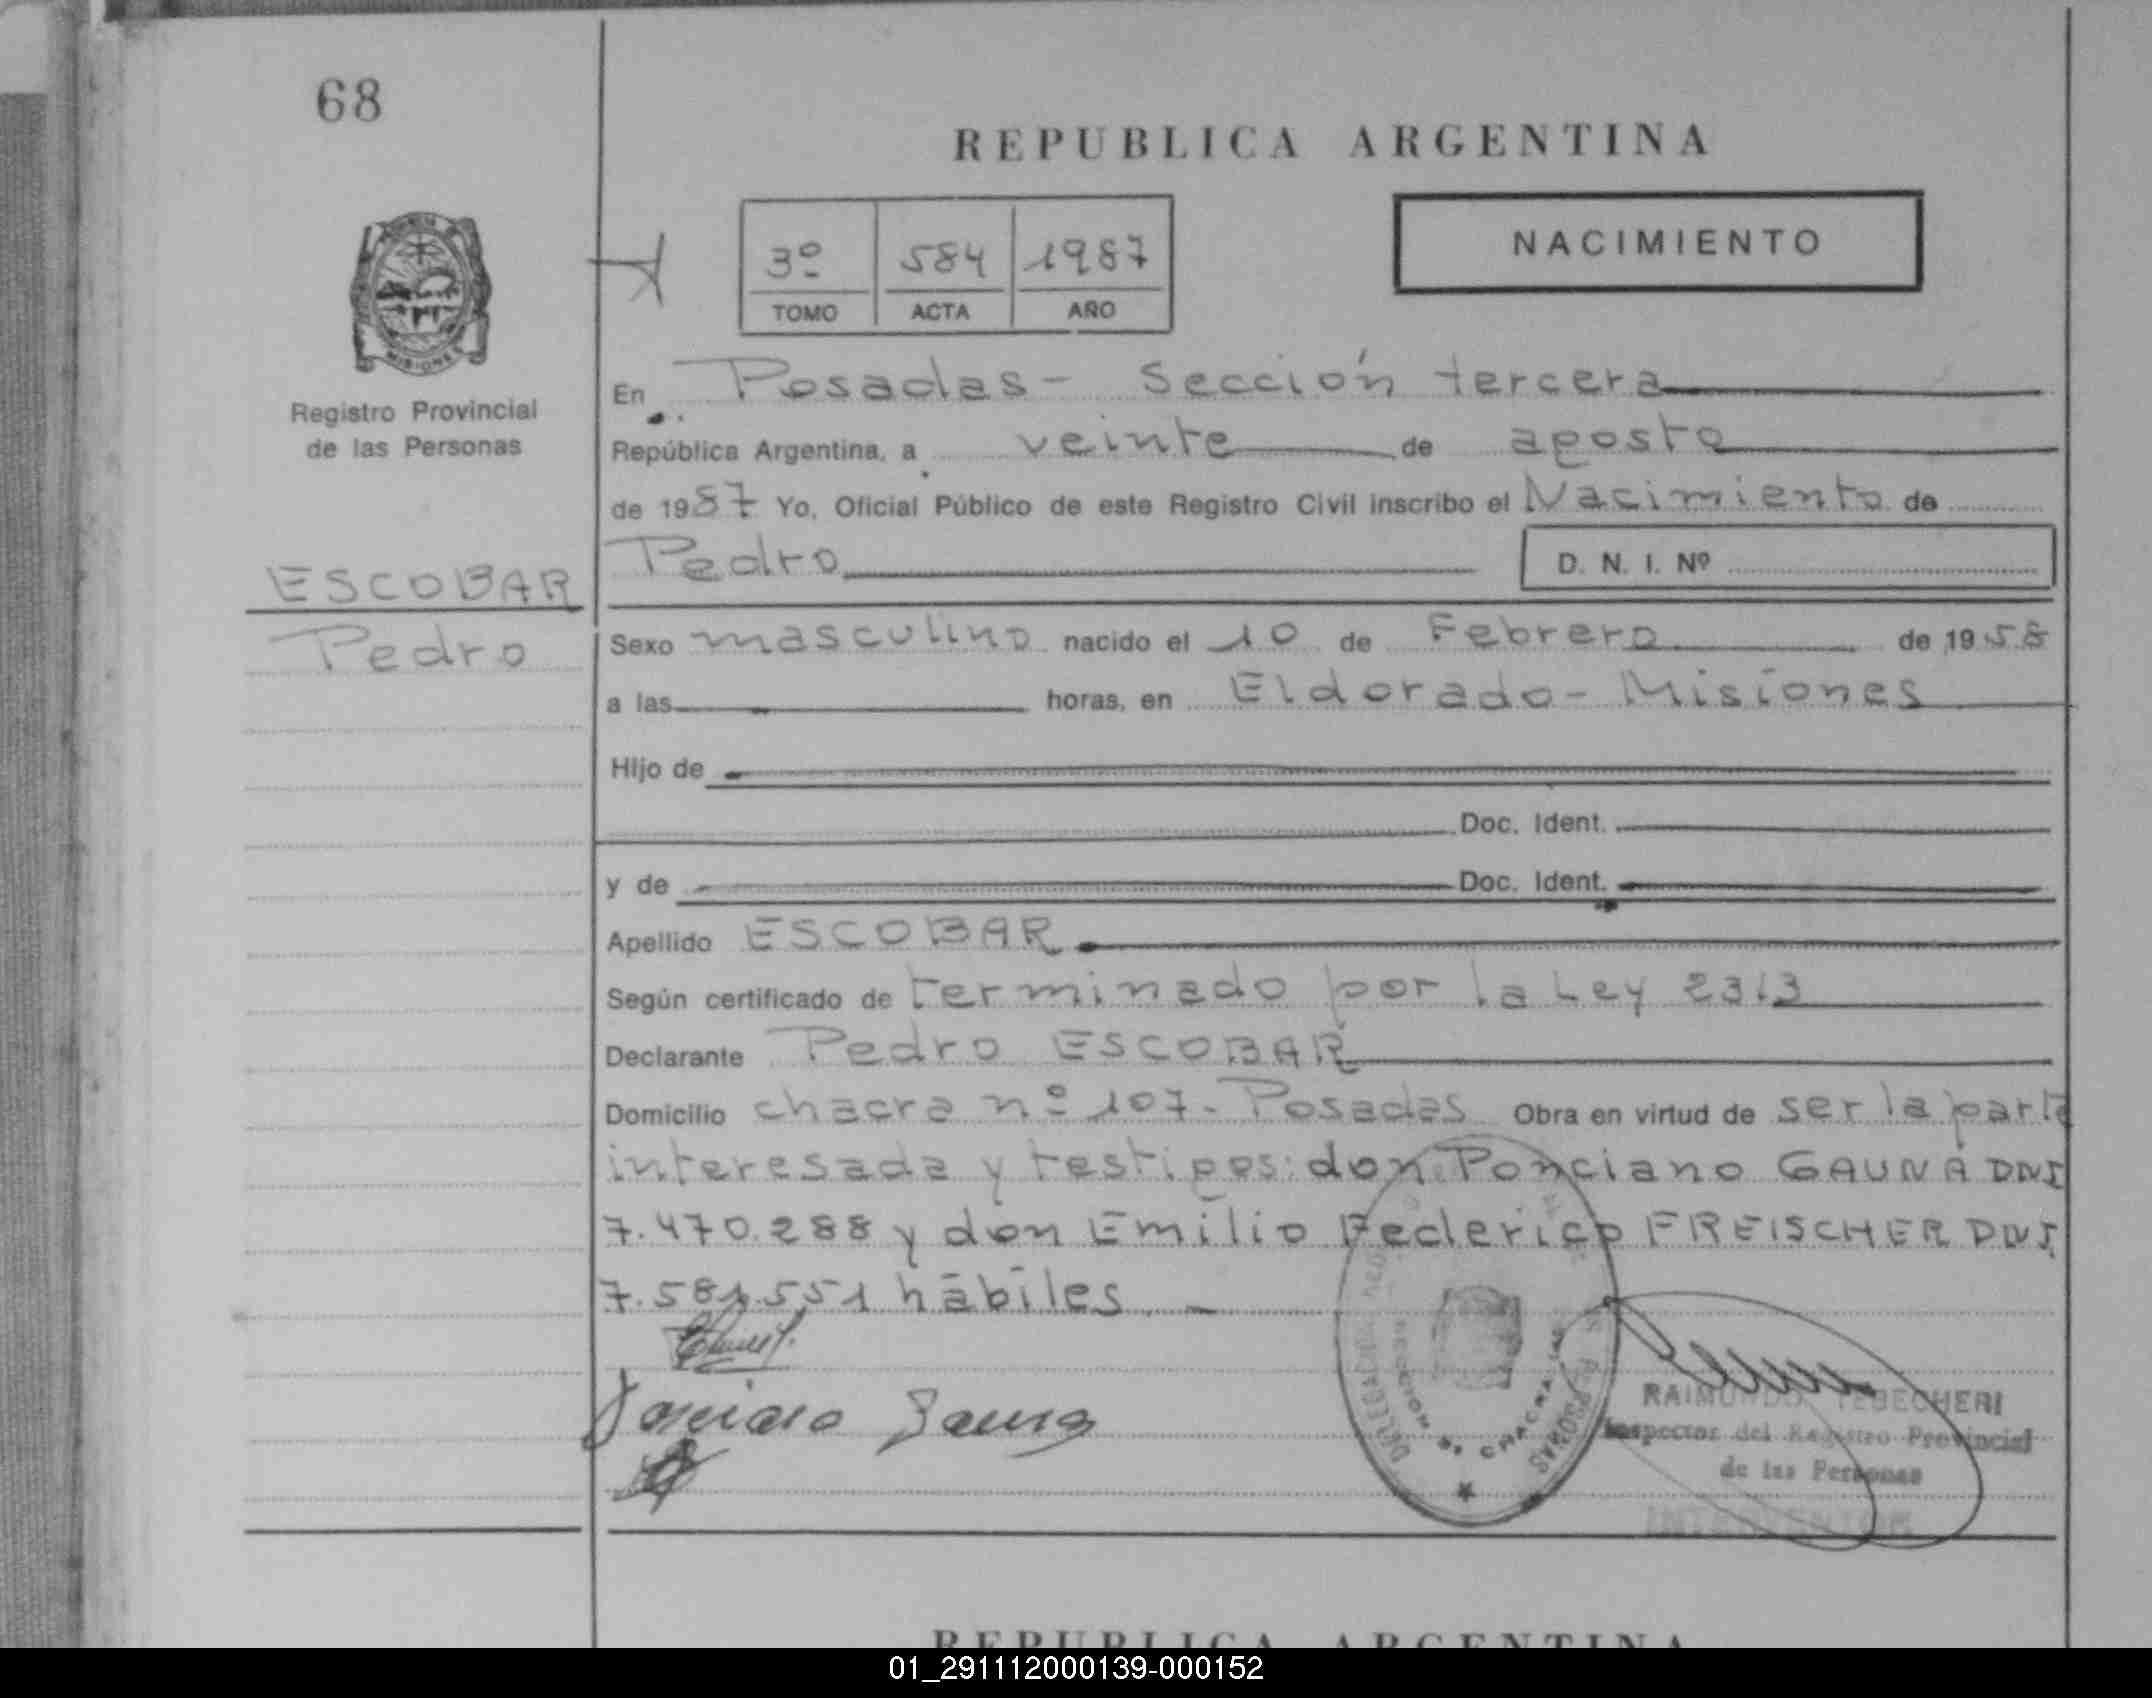 68
REPUBLICA ARGENTINA
MISIONES
3º 584 1987
TOMO ACTA AÑO
NACIMIENTO
Registro Provincial
de las Personas
En Posadas - Sección tercera
República Argentina, a veinte de agosto
de 1987 Yo, Oficial Público de este Registro Civil inscribo el Nacimiento de
Pedro D. N. I. Nº
ESCOBAR
Pedro
Sexo masculino nacido el 10 de Febrero de 1958
a las horas, en Eldorado - Misiones
Hijo de
Doc. Ident.
y de Doc. Ident.
Apellido ESCOBAR
Según certificado de terminado por la Ley 2313
Declarante Pedro ESCOBAR
Domicilio chacra nº 107 - Posadas Obra en virtud de ser la parte
interesada y testigos: don Ponciano GAUNA DNI
7.470.288 y don Emilio Federico FREISCHER DNI
7.581.551 hábiles. -
Ponciano Gauna
RAIMUNDO TEBECHERI
Inspector del Registro Provincial
de las Personas
INTERVENTOR
REPUBLICA ARGENTINA
01_291112000139-000152